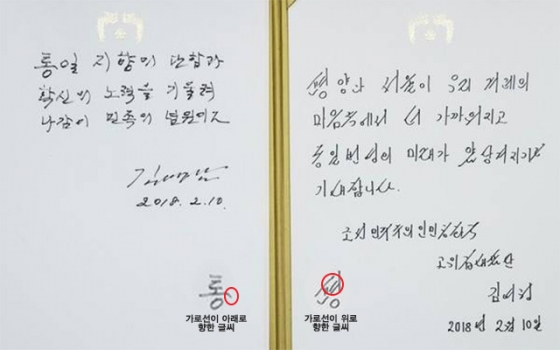 통일 지향의 단합과
확신의 노력을 기울려
나감이 민족의 념원이다
김영남
2018. 2. 10.
통
가로선이 아래로
향한 글씨
평양과 서울이 우리 겨레의
마음속에서 더 가까워지고
통일번영의 미래가 앞당겨지기를
기대합니다.
조선민주주의인민공화국
고위급대표단
김여정
2018년 2월 10일
평
가로선이 위로
향한 글씨